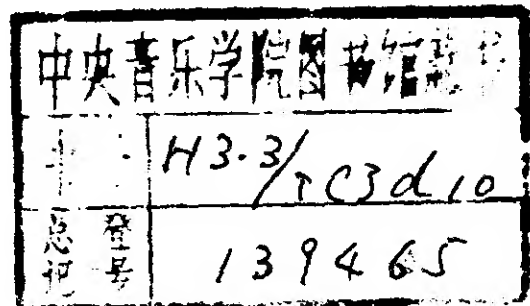 中央音乐学院图书馆藏书
H3.3/TC3d10
总登
记号 139465